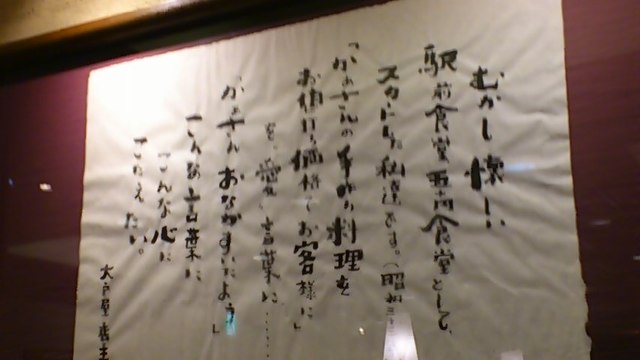 むかし懐しい
駅前食堂西河食堂として、
スタートした私達です。(昭和三
「かあさんの手作り料理を
お値打ち価格でお客様に」
を、愛い言葉に……
かあさんおなかすいたよう」
こんな言葉に
こんな心に
こたえたい。
大戸屋